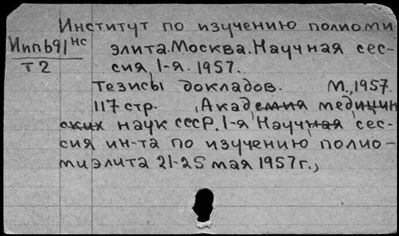 Институт по изучению полиоми
Ипп691 нс элита. Москва. Научная сес-
Т2 сия, 1-я. 1957.
Тезисы докладов. М., 1957.
117 стр. (Академия медицин
ских наук СССР. 1-я Научная сес-
сия ин-та по изучению полио-
миэлита 21-25 мая 1957г.,